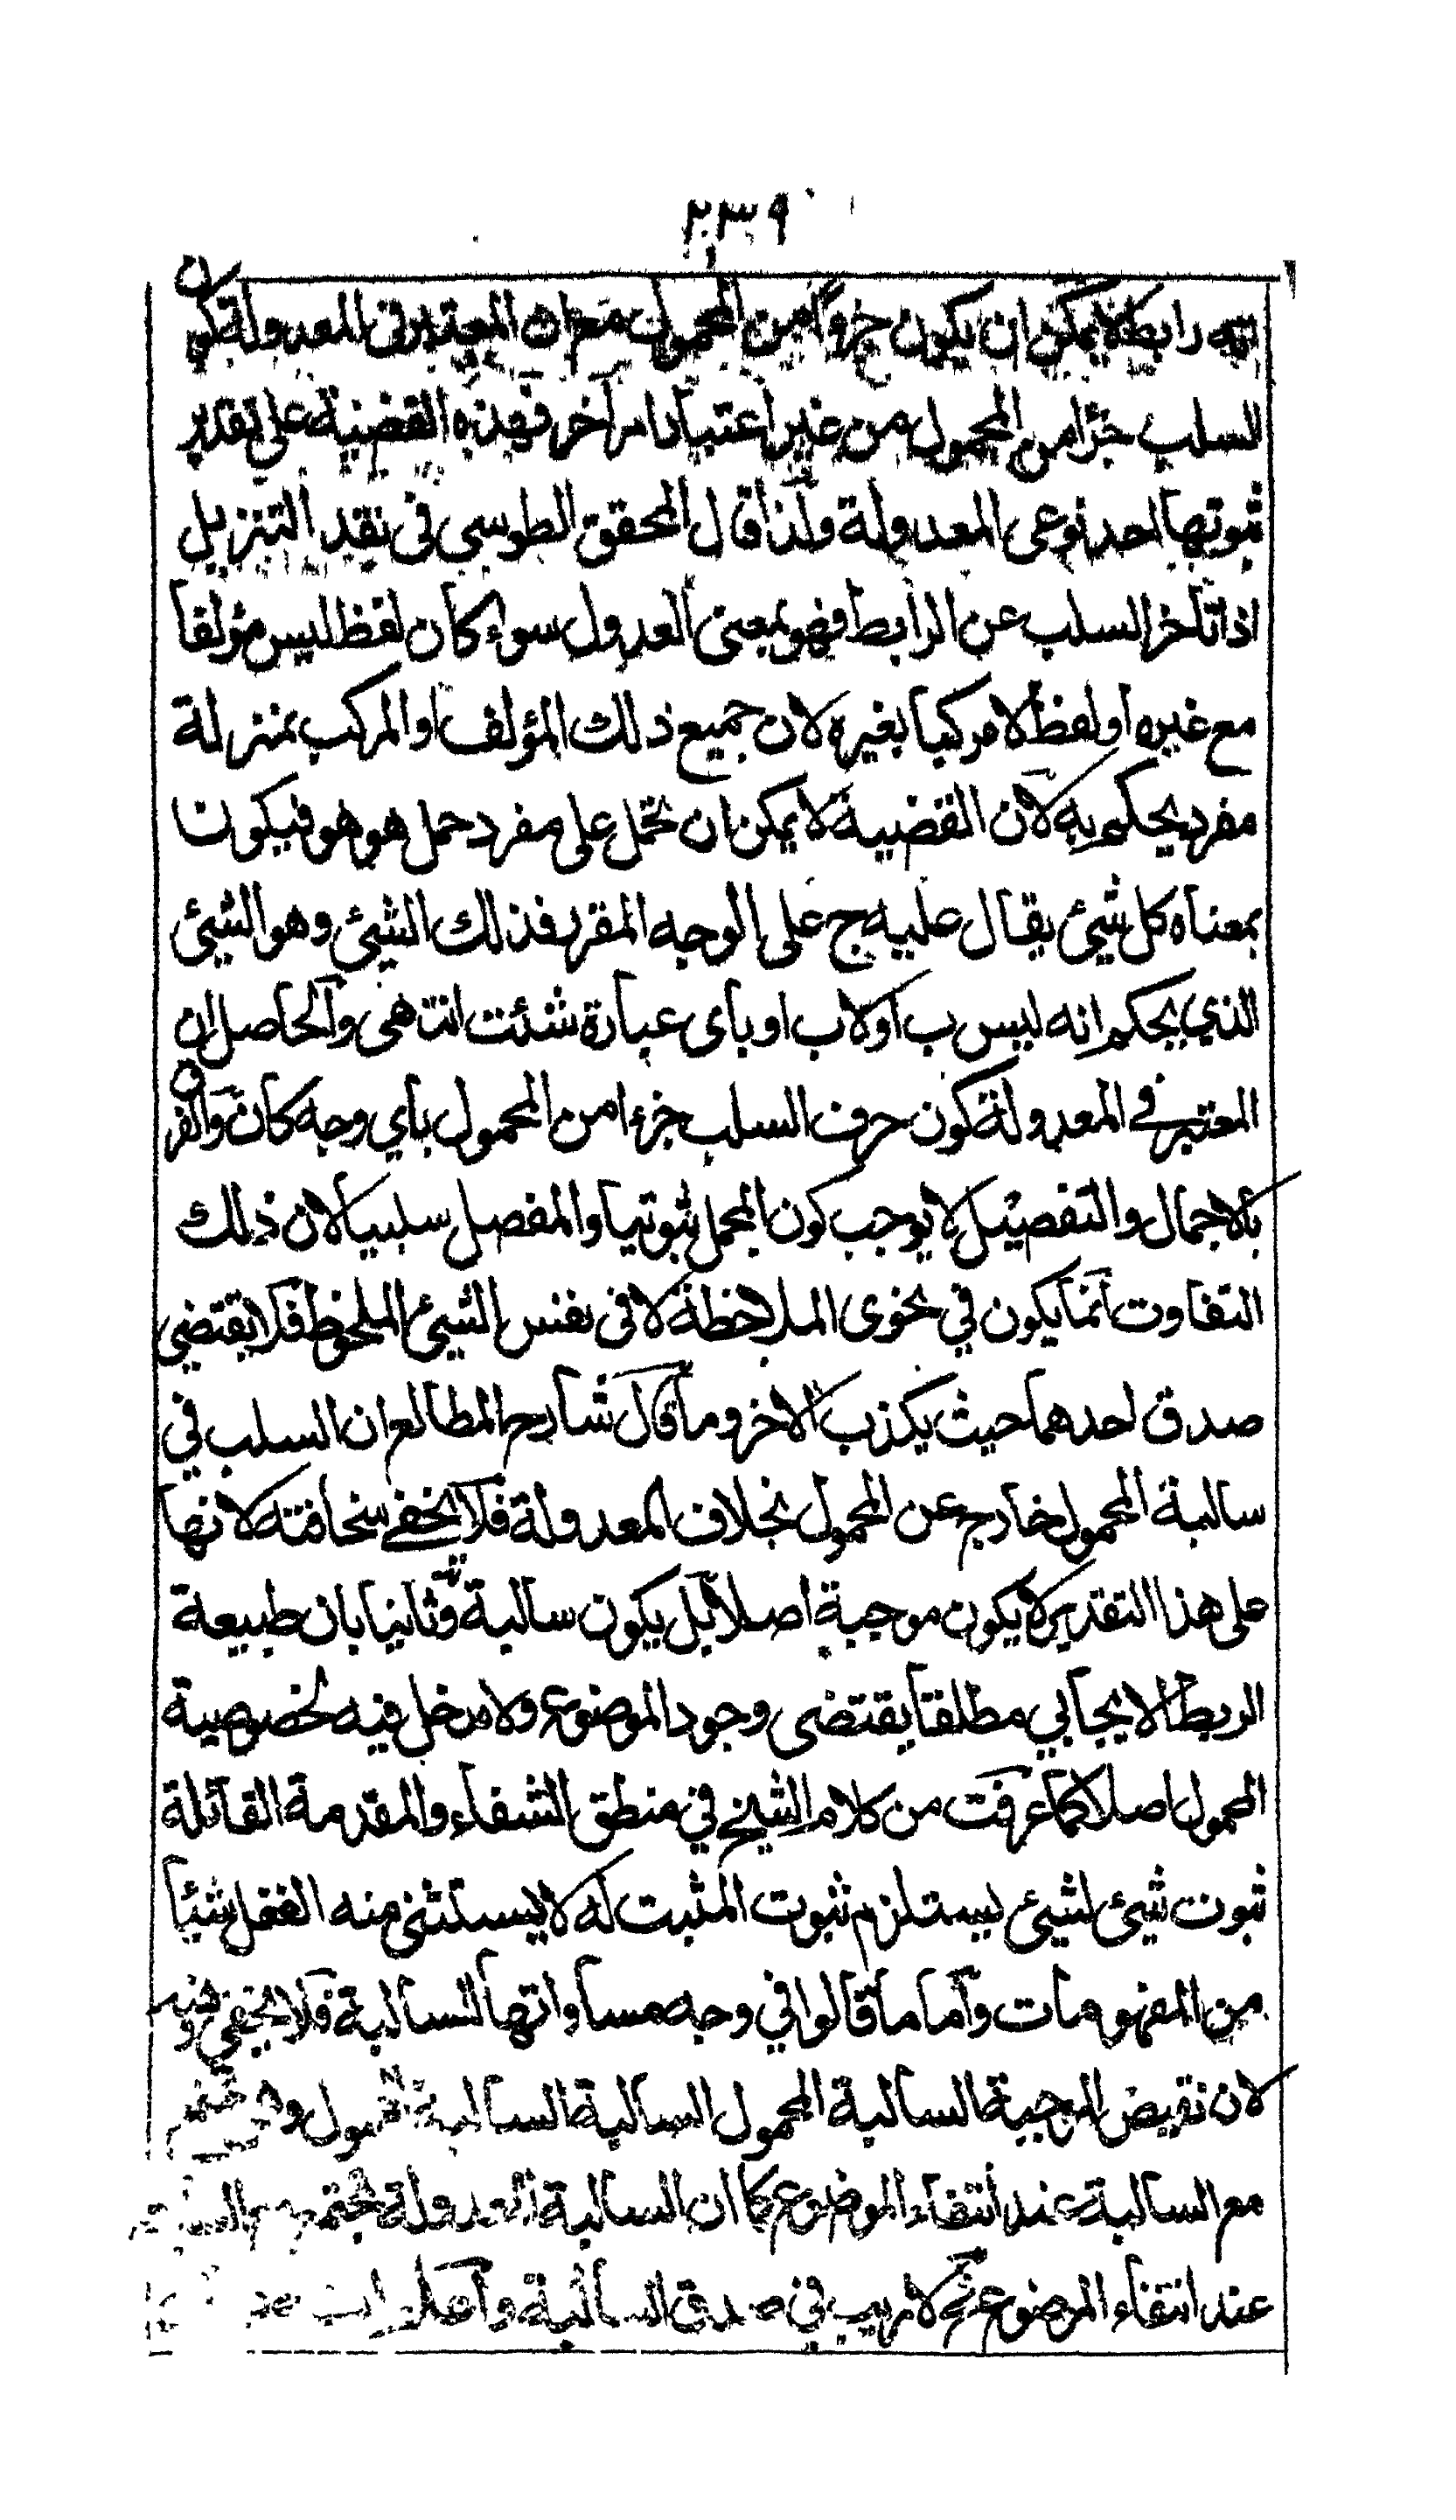 ٢٣٩
انه رابط لا يمكن ان يكون جزوًا من المحمول مع ان المعتبر فى المعدولة كون
السلب جزًا من المحمول من غير اعتبار امر آخر فهذه القضية على تقدير
ثبوتها احد نوعى المعدولة ولذا قال المحقق الطوسى فى نقد التنزيل
اذا تأخر السلب عن الرابط فهو بمعنى العدول سواء كان لفظ ليس مؤلفا
مع غيره او لفظ لا مركبا بغيره لان جميع ذلك المؤلف او المركب بمنزلة
مفرد يحكم به لان القضية لا يمكن ان تحمل على مفرد حمل هو هو فيكون
بمعناه كل شيئ يقال عليه ج على الوجه المقرر فذلك الشيئ وهو الشيئ
الذي يحكم انه ليس ب او لا ب او باى عبارة شئت انتهى والحاصل ان
المعتبر في المعدولة كون حرف السلب جزءا من المحمول بأي وجه كان والفرق
بالاجمال والتفصيل لا يوجب كون المجمل ثبوتيا والمفصل سلبيا لان ذلك
التفاوت انما يكون في نحوى الملاحظة لا فى نفس الشيئ الملحوظ فلا يقتضى
صدق احدهما حيث يكذب الاخر وما قال شارح المطالع ان السلب في
سالبة المحمول خارج عن المحمول بخلاف المعدولة فلا يخفى سخافته لانها
على هذا التقدير لا يكون موجبة اصلا بل يكون سالبة وثانيا بان طبيعة
الربط الايجابي مطلقا يقتضى وجود الموضوع ولا مدخل فيه لخصوصية
المحمول اصلا كما عرفت من كلام الشيخ في منطق الشفاء والمقدمة القائلة
ثبوت شيئ لشيئ يستلزم ثبوت المثبت له لا يستثنى منه العقل شيئا
من المفهومات واما ما قالوا في وجه مساواتها السالبة فلا يخفى وهنه
لان نقيض الموجبة السالبة المحمول السالبة السالبة المحمول وهى تجتمع
مع السالبة عند انتفاء الموضوع كما ان السالبة المعدولة تجتمع مع
عند انتفاء الموضوع نعم لا ريب في صدق السالبة